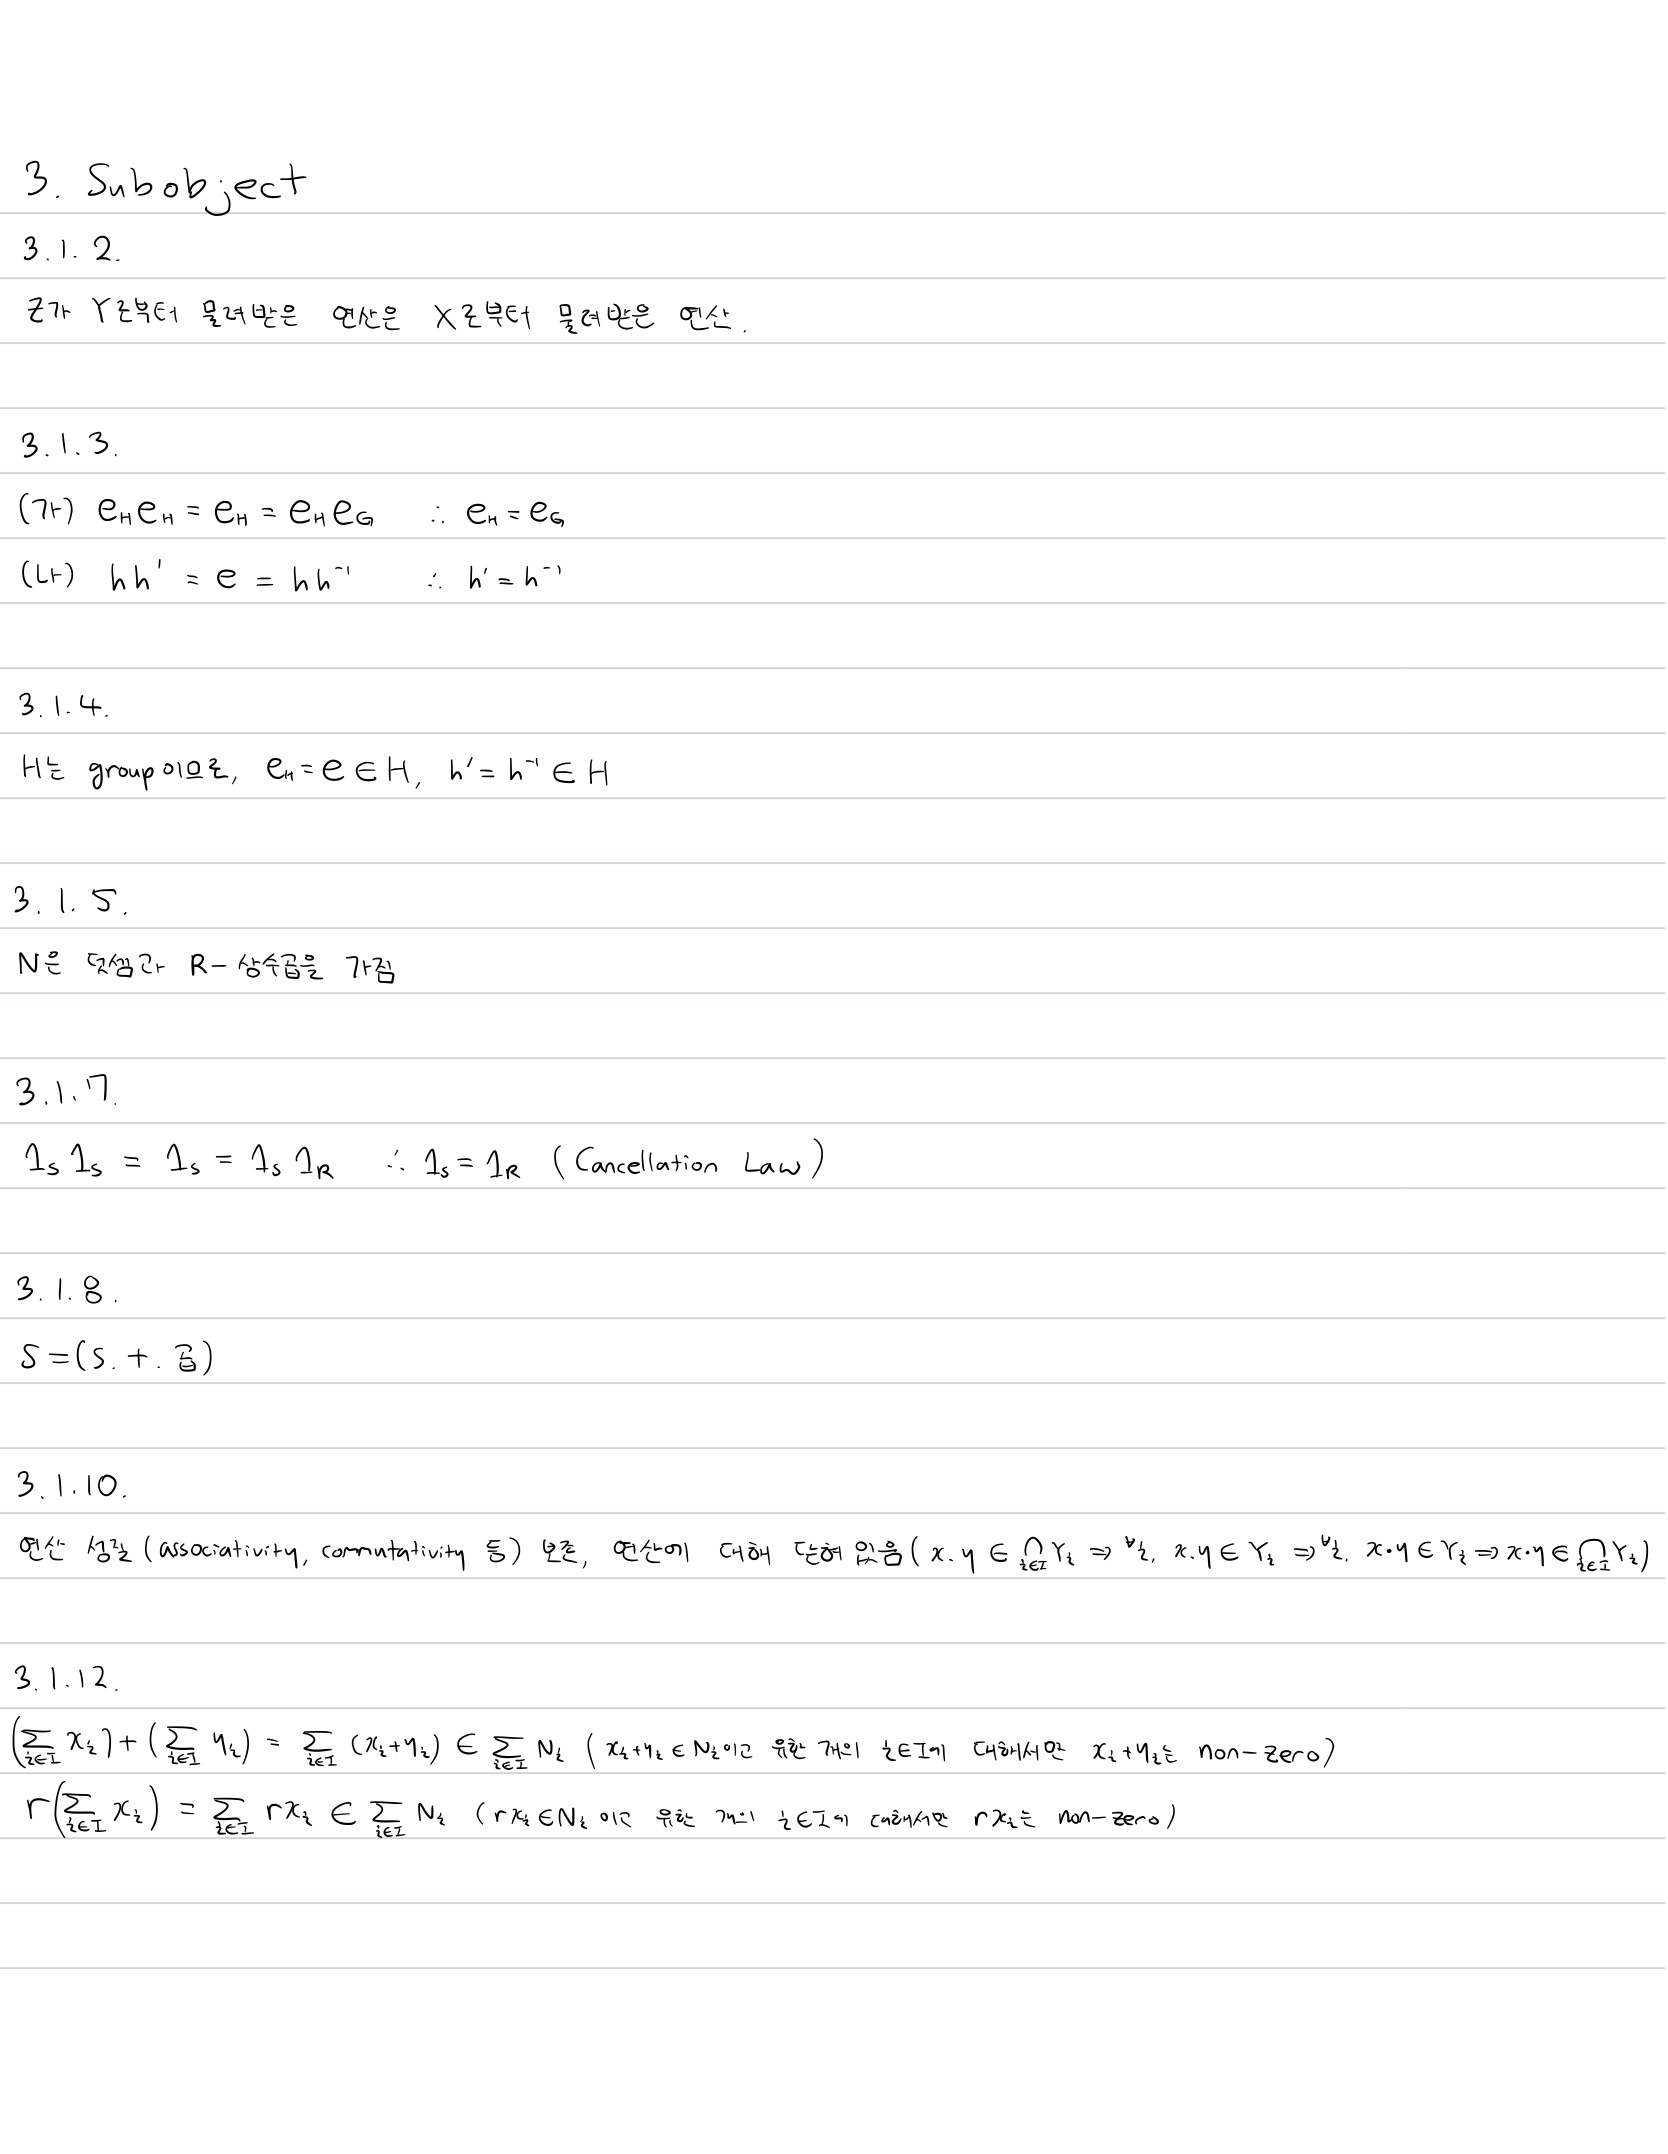 3. Subobject
3.1.2.
Z가 Y로부터 물려받은 연산은 X로부터 물려받은 연산.
3.1.3.
(가) e_H e_H = e_H = e_H e_G ∴ e_H = e_G
(나) hh' = e = hh⁻¹ ∴ h' = h⁻¹
3.1.4.
H는 group이므로, e_H = e ∈ H, h' = h⁻¹ ∈ H
3.1.5.
N은 덧셈과 R-상수곱을 가짐
3.1.7.
1_S 1_S = 1_S = 1_S 1_R ∴ 1_S = 1_R (Cancellation Law)
3.1.8.
S = (S, +, 곱)
3.1.10.
연산 성질 (associativity, commutativity 등) 보존, 연산에 대해 닫혀 있음 (x, y ∈ ⋂_{i∈I} Y_i ⇒ ∀i, x, y ∈ Y_i ⇒ ∀i, x·y ∈ Y_i ⇒ x·y ∈ ⋂_{i∈I} Y_i)
3.1.12.
(∑_{i∈I} x_i) + (∑_{i∈I} y_i) = ∑_{i∈I} (x_i + y_i) ∈ ∑_{i∈I} N_i (x_i + y_i ∈ N_i이고 유한 개의 i∈I에 대해서만 x_i + y_i는 non-zero)
r(∑_{i∈I} x_i) = ∑_{i∈I} rx_i ∈ ∑_{i∈I} N_i (rx_i ∈ N_i 이고 유한 개의 i∈I에 대해서만 rx_i는 non-zero)